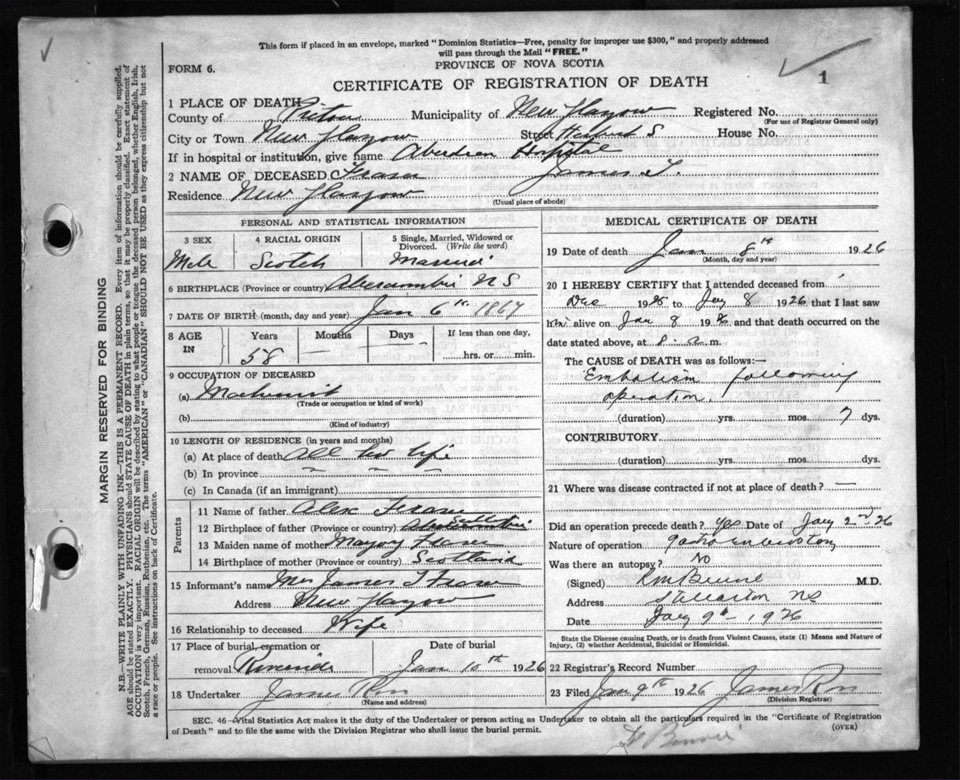 This form if placed in an envelope, marked "Dominion Statistics—Free, penalty for improper use $300," and properly addressed
will pass through the Mail "FREE."
FORM 6.
PROVINCE OF NOVA SCOTIA
1
CERTIFICATE OF REGISTRATION OF DEATH
MARGIN RESERVED FOR BINDING
N.B.—WRITE PLAINLY WITH UNFADING INK—THIS IS A PERMANENT RECORD. Every item of information should be carefully supplied.
AGE should be stated EXACTLY. PHYSICIANS should STATE CAUSE OF DEATH in plain terms, so that it may be properly classified. Exact statement of
OCCUPATION is very important. RACIAL ORIGIN will be described by stating to what people or tongue the deceased person belonged, whether English, Irish,
Scotch, French, German, Russian, Ruthenian, etc. The terms "AMERICAN" or "CANADIAN" SHOULD NOT BE USED as they express citizenship but not
a race or people. See instructions on back of Certificate.
1 PLACE OF DEATH
County of Pictou Municipality of New Glasgow Registered No.
(For use of Registrar General only)
City or Town New Glasgow Street House No.
If in hospital or institution, give name Aberdeen Hospital
2 NAME OF DECEASED Fraser James T.
Residence New Glasgow
(Usual place of abode)
PERSONAL AND STATISTICAL INFORMATION
3 SEX 4 RACIAL ORIGIN 5 Single, Married, Widowed or
Divorced. (Write the word)
Male Scotch Married
6 BIRTHPLACE (Province or country) Abercrombie NS
7 DATE OF BIRTH (month, day and year) Jan 6th 1867
8 AGE IN Years Months Days If less than one day,
58 — — hrs. or min.
9 OCCUPATION OF DECEASED
(a) Machinist
(Trade or occupation or kind of work)
(b)
(Kind of industry)
10 LENGTH OF RESIDENCE (in years and months)
(a) At place of death All his life
(b) In province " " "
(c) In Canada (if an immigrant)
Parents
11 Name of father Alex Fraser
12 Birthplace of father (Province or country)
13 Maiden name of mother Marjory Fraser
14 Birthplace of mother (Province or country) Scotland
15 Informant's name Mrs James T Fraser
Address New Glasgow
16 Relationship to deceased Wife
17 Place of burial, cremation or Date of burial
removal Riverside Jan 10th 1926
18 Undertaker James Ross
(Name and address)
MEDICAL CERTIFICATE OF DEATH
19 Date of death Jan 8th 1926
(Month, day and year)
20 I HEREBY CERTIFY that I attended deceased from
Dec 1925 to Jay 8 1926 that I last saw
him alive on Jan 8 1926 and that death occurred on
the date stated above, at 8 a.m.
The CAUSE OF DEATH was as follows:—
Embolism following
operation.
(duration) yrs. mos. 7 dys.
CONTRIBUTORY
(duration) yrs. mos. dys.
21 Where was disease contracted if not at place of death? —
Did an operation precede death? yes Date of Jay 2nd 26
Nature of operation
Was there an autopsy? No
(Signed) M.D.
Address Stellarton NS
Date Jay 9th 1926
State the Disease causing Death, or in death from Violent Causes, state (1) Means and Nature of
Injury, (2) whether Accidental, Suicidal or Homicidal.
22 Registrar's Record Number
23 Filed Jan 9th 1926 James Ross
(Division Registrar)
SEC. 46—Vital Statistics Act makes it the duty of the Undertaker or person acting as Undertaker to obtain all the particulars required in the "Certificate of Registration
of Death" and to file the same with the Division Registrar who shall issue the burial permit.
(OVER)